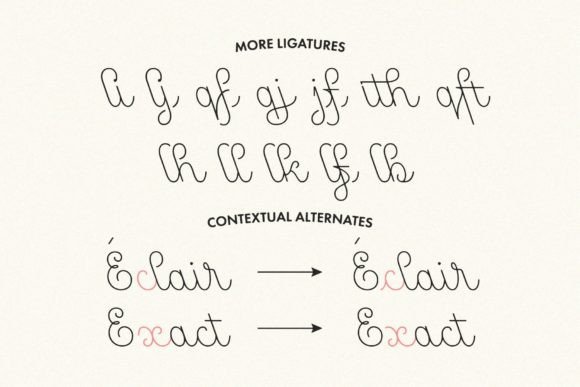 MORE LIGATURES
qf gj jf ith qft
lh ll lk lf lb
CONTEXTUAL ALTERNATES
Éclair Éclair
Exact Exact